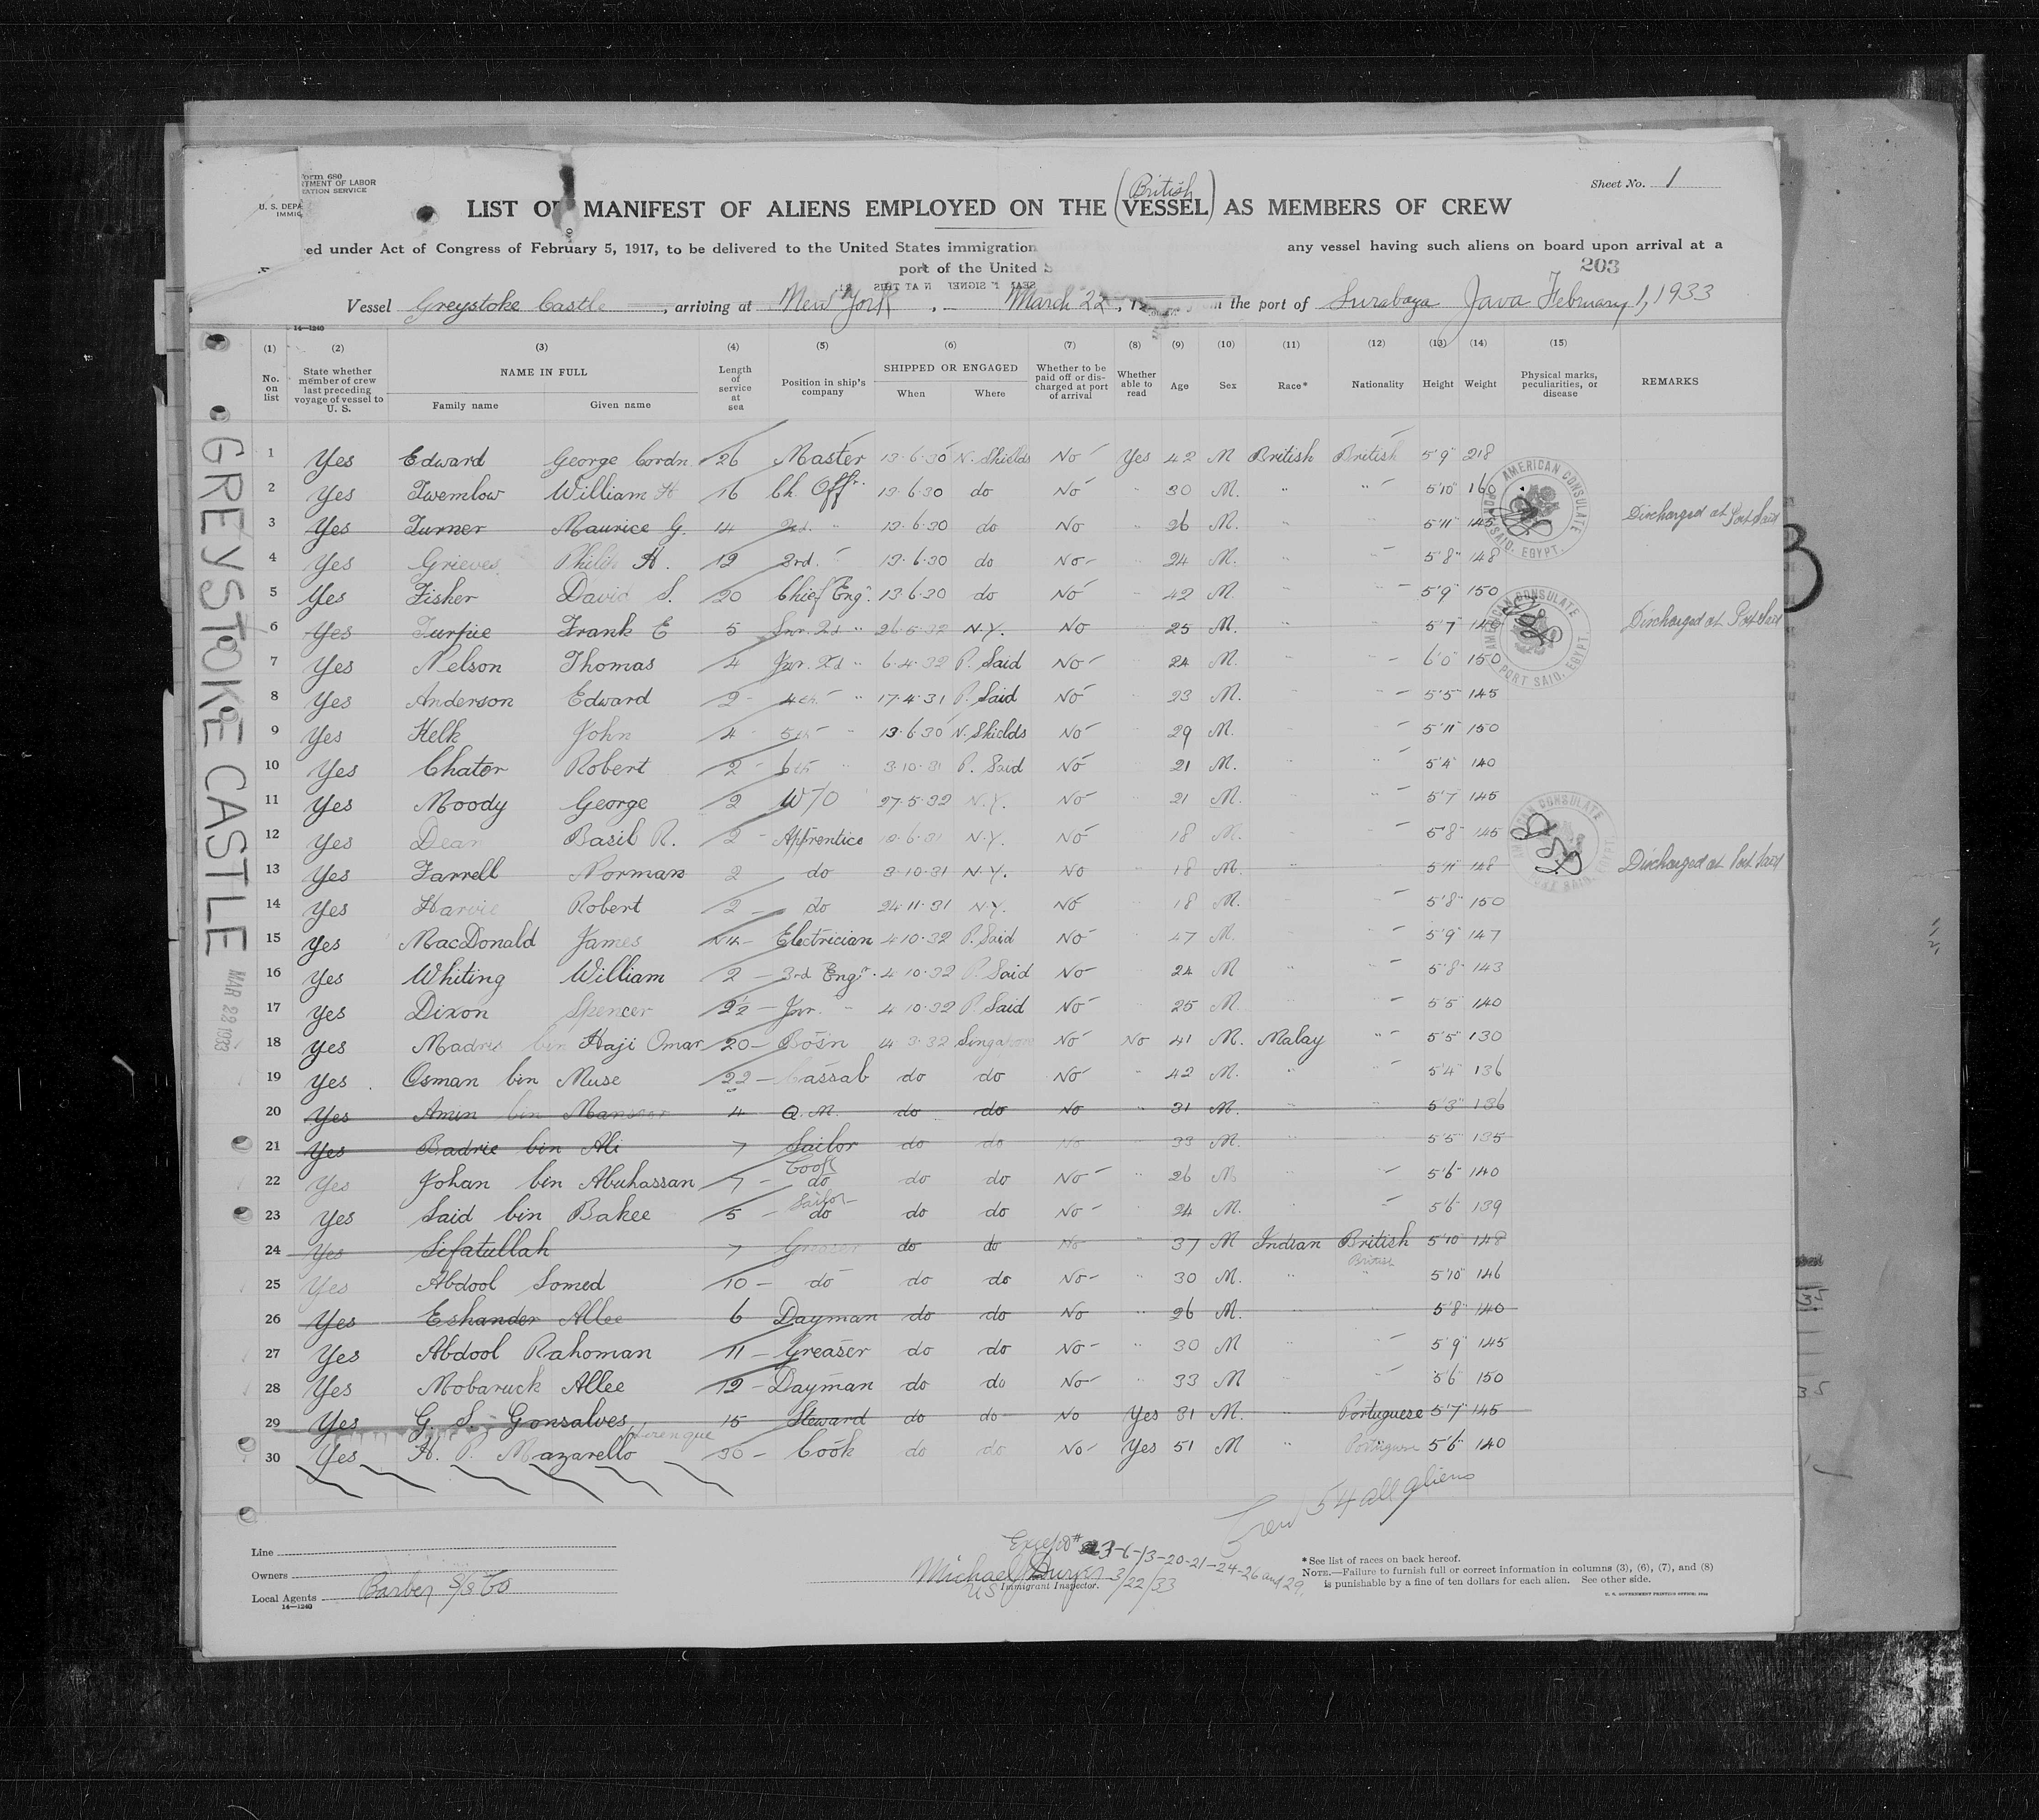 Form 680
U. S. DEPARTMENT OF LABOR
IMMIGRATION SERVICE
Sheet No. 1
(British
LIST OR MANIFEST OF ALIENS EMPLOYED ON THE VESSEL) AS MEMBERS OF CREW
ed under Act of Congress of February 5, 1917, to be delivered to the United States immigration any vessel having such aliens on board upon arrival at a
port of the United S
203
Vessel Greystoke Castle, arriving at New York, March 22, 1 the port of Surabaya Java February 1, 1933
14—1240
(1) (2) (3) (4) (5) (6) (7) (8) (9) (10) (11) (12) (13) (14) (15)
No. on list State whether member of crew last preceding voyage of vessel to U. S. NAME IN FULL Family name Given name Length of service at sea Position in ship's company SHIPPED OR ENGAGED When Where Whether to be paid off or discharged at port of arrival Whether able to read Age Sex Race* Nationality Height Weight Physical marks, peculiarities, or disease REMARKS
1 Yes Edward George Cordn 26 Master 13·6·30 N. Shields No Yes 42 M British British 5'9" 218
2 Yes Twemlow William H 16 Ch. Offr. 13·6·30 do No " 30 M. " " 5'10" 160
3 Yes Turner Maurice G. 14 2nd. " 13·6·30 do No " 26 M. " " 5'11" 145 Discharged at Port Said
4 Yes Grieves Philip H. 12 3rd. " 13·6·30 do No " 24 M. " " 5'8" 148
5 Yes Fisher David S. 20 Chief Engr. 13·6·30 do No " 42 M. " " 5'9" 150
6 Yes Turpie Frank E 5 Snr. 2d " 26·5·32 N.Y. No " 25 M. " " 5'7" 140 Discharged at Port Said
7 Yes Nelson Thomas 4 Jnr. 2d " 6·4·32 P. Said No " 24 M. " " 6'0" 150
8 Yes Anderson Edward 2 4th " 17·4·31 P. Said No " 23 M. " " 5'5" 145
9 Yes Helk John 4 5th " 13·6·30 N. Shields No " 29 M. " " 5'11" 150
10 Yes Chater Robert 2 6th " 3·10·31 P. Said No " 21 M. " " 5'4" 140
11 Yes Moody George 2 W/O 27·5·32 N.Y. No " 21 M. " " 5'7" 145
12 Yes Dean Basil R. 2 Apprentice 10·6·31 N.Y. No " 18 M. " " 5'8" 145
13 Yes Farrell Norman 2 do 3·10·31 N.Y. No " 18 M. " " 5'11" 148 Discharged at Port Said
14 Yes Harvie Robert 2 do 24·11·31 N.Y. No " 18 M. " " 5'8" 150
15 Yes MacDonald James Electrician 4·10·32 P. Said No " 47 M. " " 5'9" 147
16 Yes Whiting William 2 3rd Engr. 4·10·32 P. Said No " 24 M " " 5'8" 143
17 Yes Dixon Spencer 2½ Jnr. " 4·10·32 P. Said No " 25 M. " " 5'5" 140
18 Yes Madris bin Haji Omar 20 Bosn 14·3·32 Singapore No No 41 M. Malay " 5'5" 130
19 Yes Osman bin Muse 22 Cassab do do No " 42 M. " " 5'4" 136
20 Yes Amin bin Mansoor 4 Q.M. do do No " 31 M. " " 5'3" 136
21 Yes Badrie bin Ali 7 Sailor do do No " 33 M. " " 5'5" 135
22 Yes Johan bin Abuhassan 7 Cook do do do No " 26 M " " 5'6" 140
23 Yes Said bin Bakee 5 Sailor do do do No " 24 M. " " 5'6" 139
24 Yes Sifatullah 7 Greaser do do No " 37 M Indian British 5'10" 148
25 Yes Abdool Somed 10 do do do No " 30 M. " British " 5'10" 146
26 Yes Eshander Allee 6 Dayman do do No " 26 M. " " 5'8" 140
27 Yes Abdool Rahoman 11 Greaser do do No " 30 M " " 5'9" 145
28 Yes Mobaruck Allee 12 Dayman do do No " 33 M " " 5'6" 150
29 Yes G. S. Gonsalves 15 Steward do do No Yes 31 M. " Portuguese 5'7" 145
30 Yes H. P. Mazarello 30 Cook do do No Yes 51 M " Portuguese 5'6" 140
AMERICAN CONSULATE
PORT SAID, EGYPT.
AMERICAN CONSULATE
PORT SAID, EGYPT.
GREYSTOKE CASTLE
MAR 22 1933
Crew 54 all aliens
Line
Owners
Local Agents Barber S/S Co
14—1240
Except # 3-6-13-20-21-24-26 and 29.
Michael Dwyer 3/22/33
US Immigrant Inspector.
*See list of races on back hereof.
NOTE.—Failure to furnish full or correct information in columns (3), (6), (7), and (8)
is punishable by a fine of ten dollars for each alien. See other side.
U. S. GOVERNMENT PRINTING OFFICE